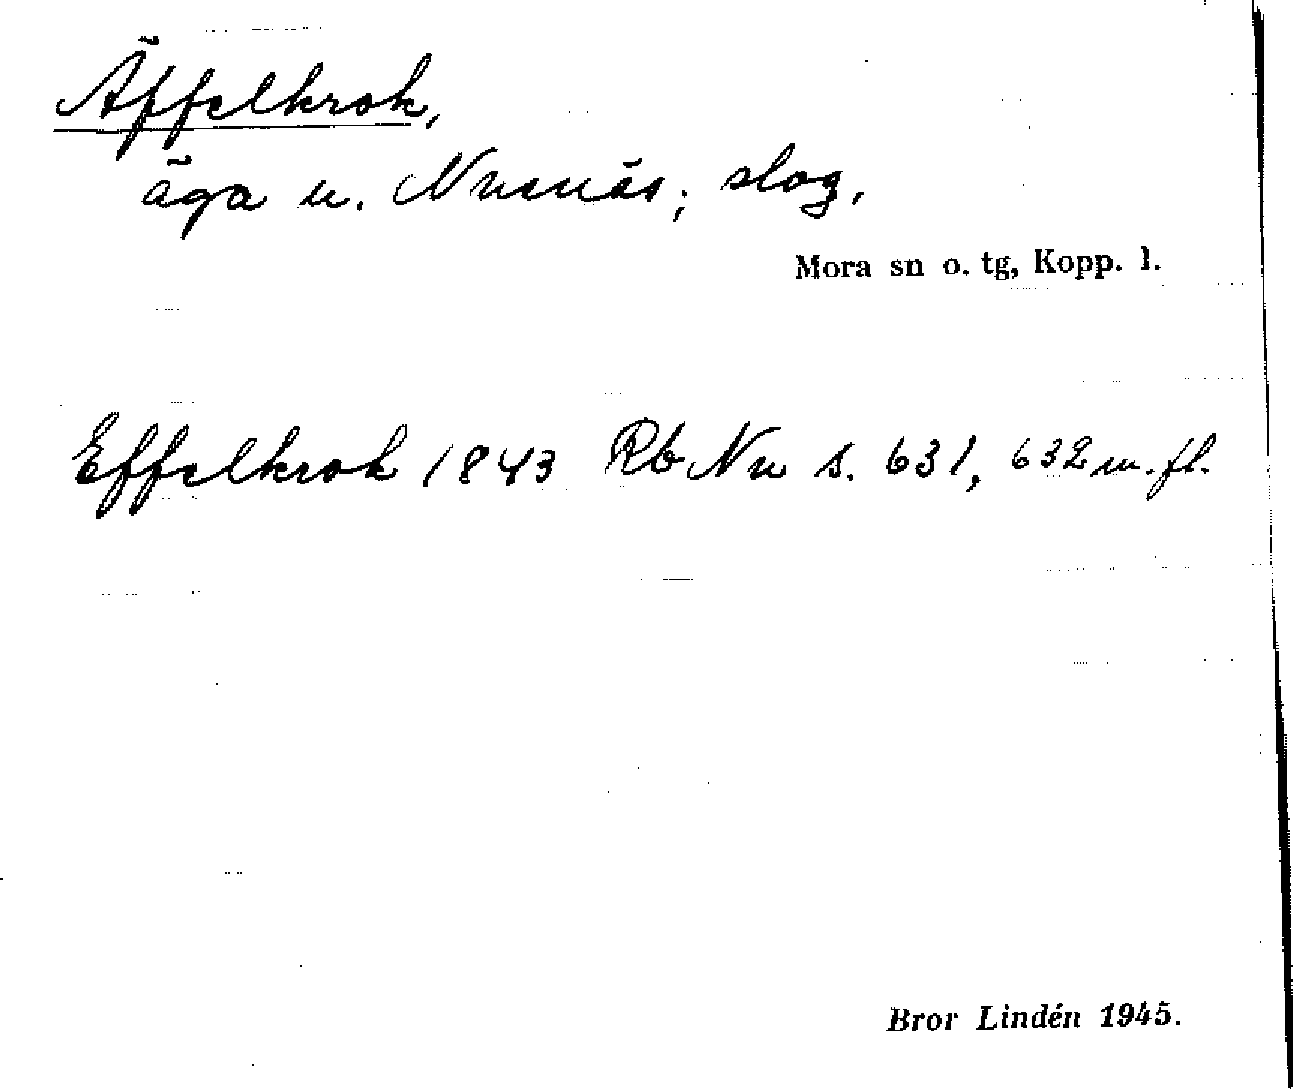 Äffelkrok,
äga u. Nusnäs; slog,
Mora sn o. tg, Kopp. l.
Effelkrok 1843 Rb Nu s. 631, 632 m. fl.
Bror Lindén 1945.